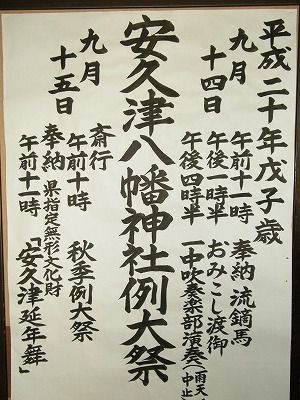 平成二十年戊子歳
九月十四日
午前十一時 奉納 流鏑馬
午後一時半 おみこし渡御
午後四時半 一中吹奏楽部演奏(雨天中止
安久津八幡神社例大祭
九月十五日
斎行
午前十時 秋季例大祭
奉納 県指定無形文化財
午前十一時 「安久津延年舞」